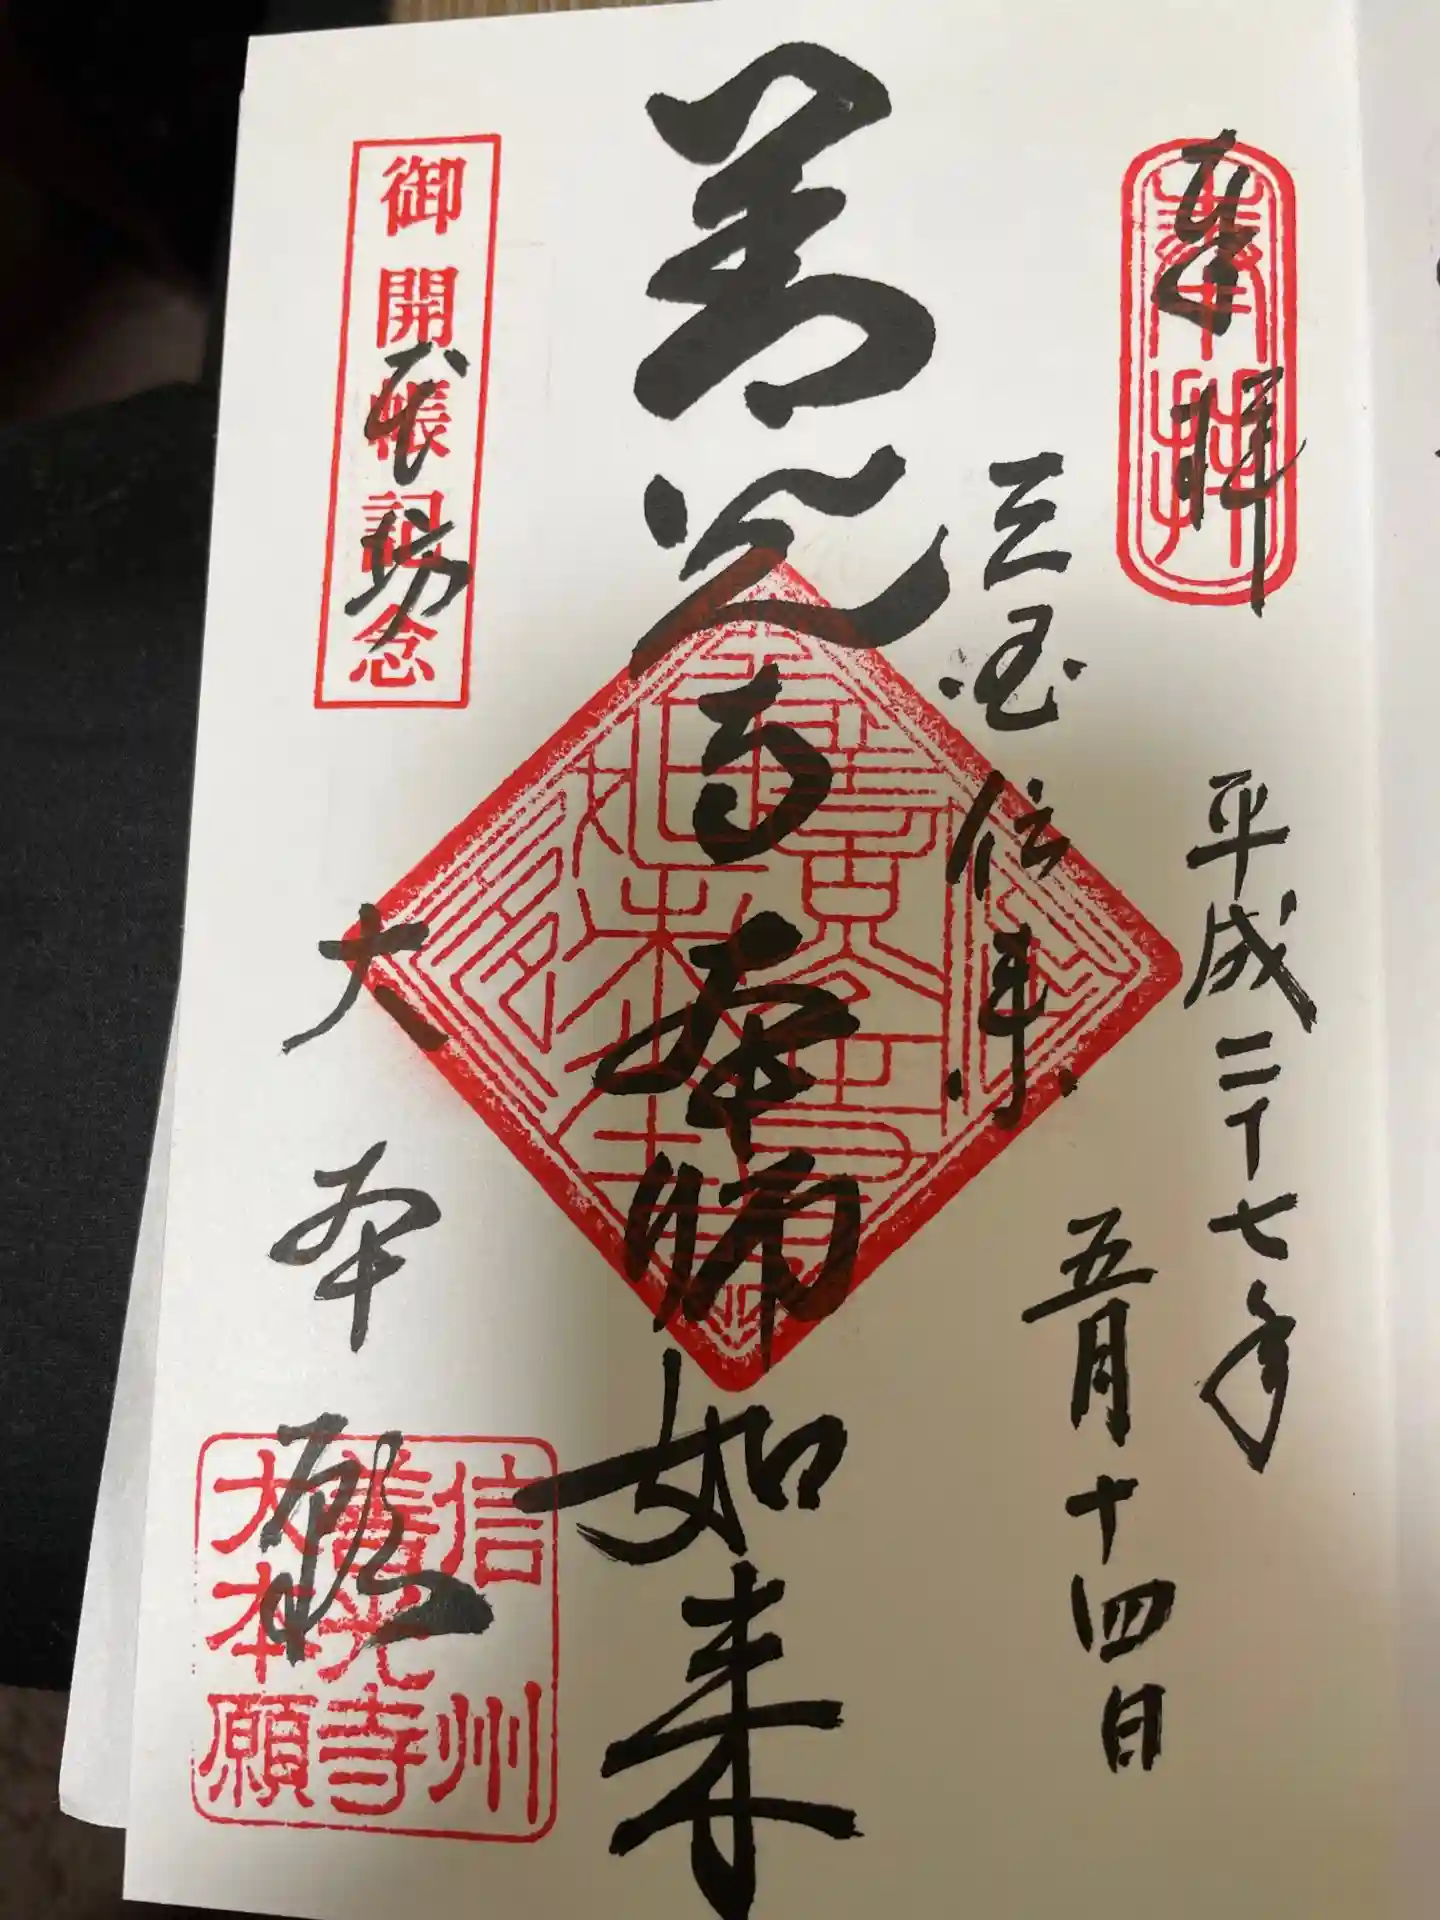 奉拝
奉拝
平成二十七年
五月十四日
三国伝来
善光寺本師如来
御開帳記念
大本願
信州
善光寺
大本願